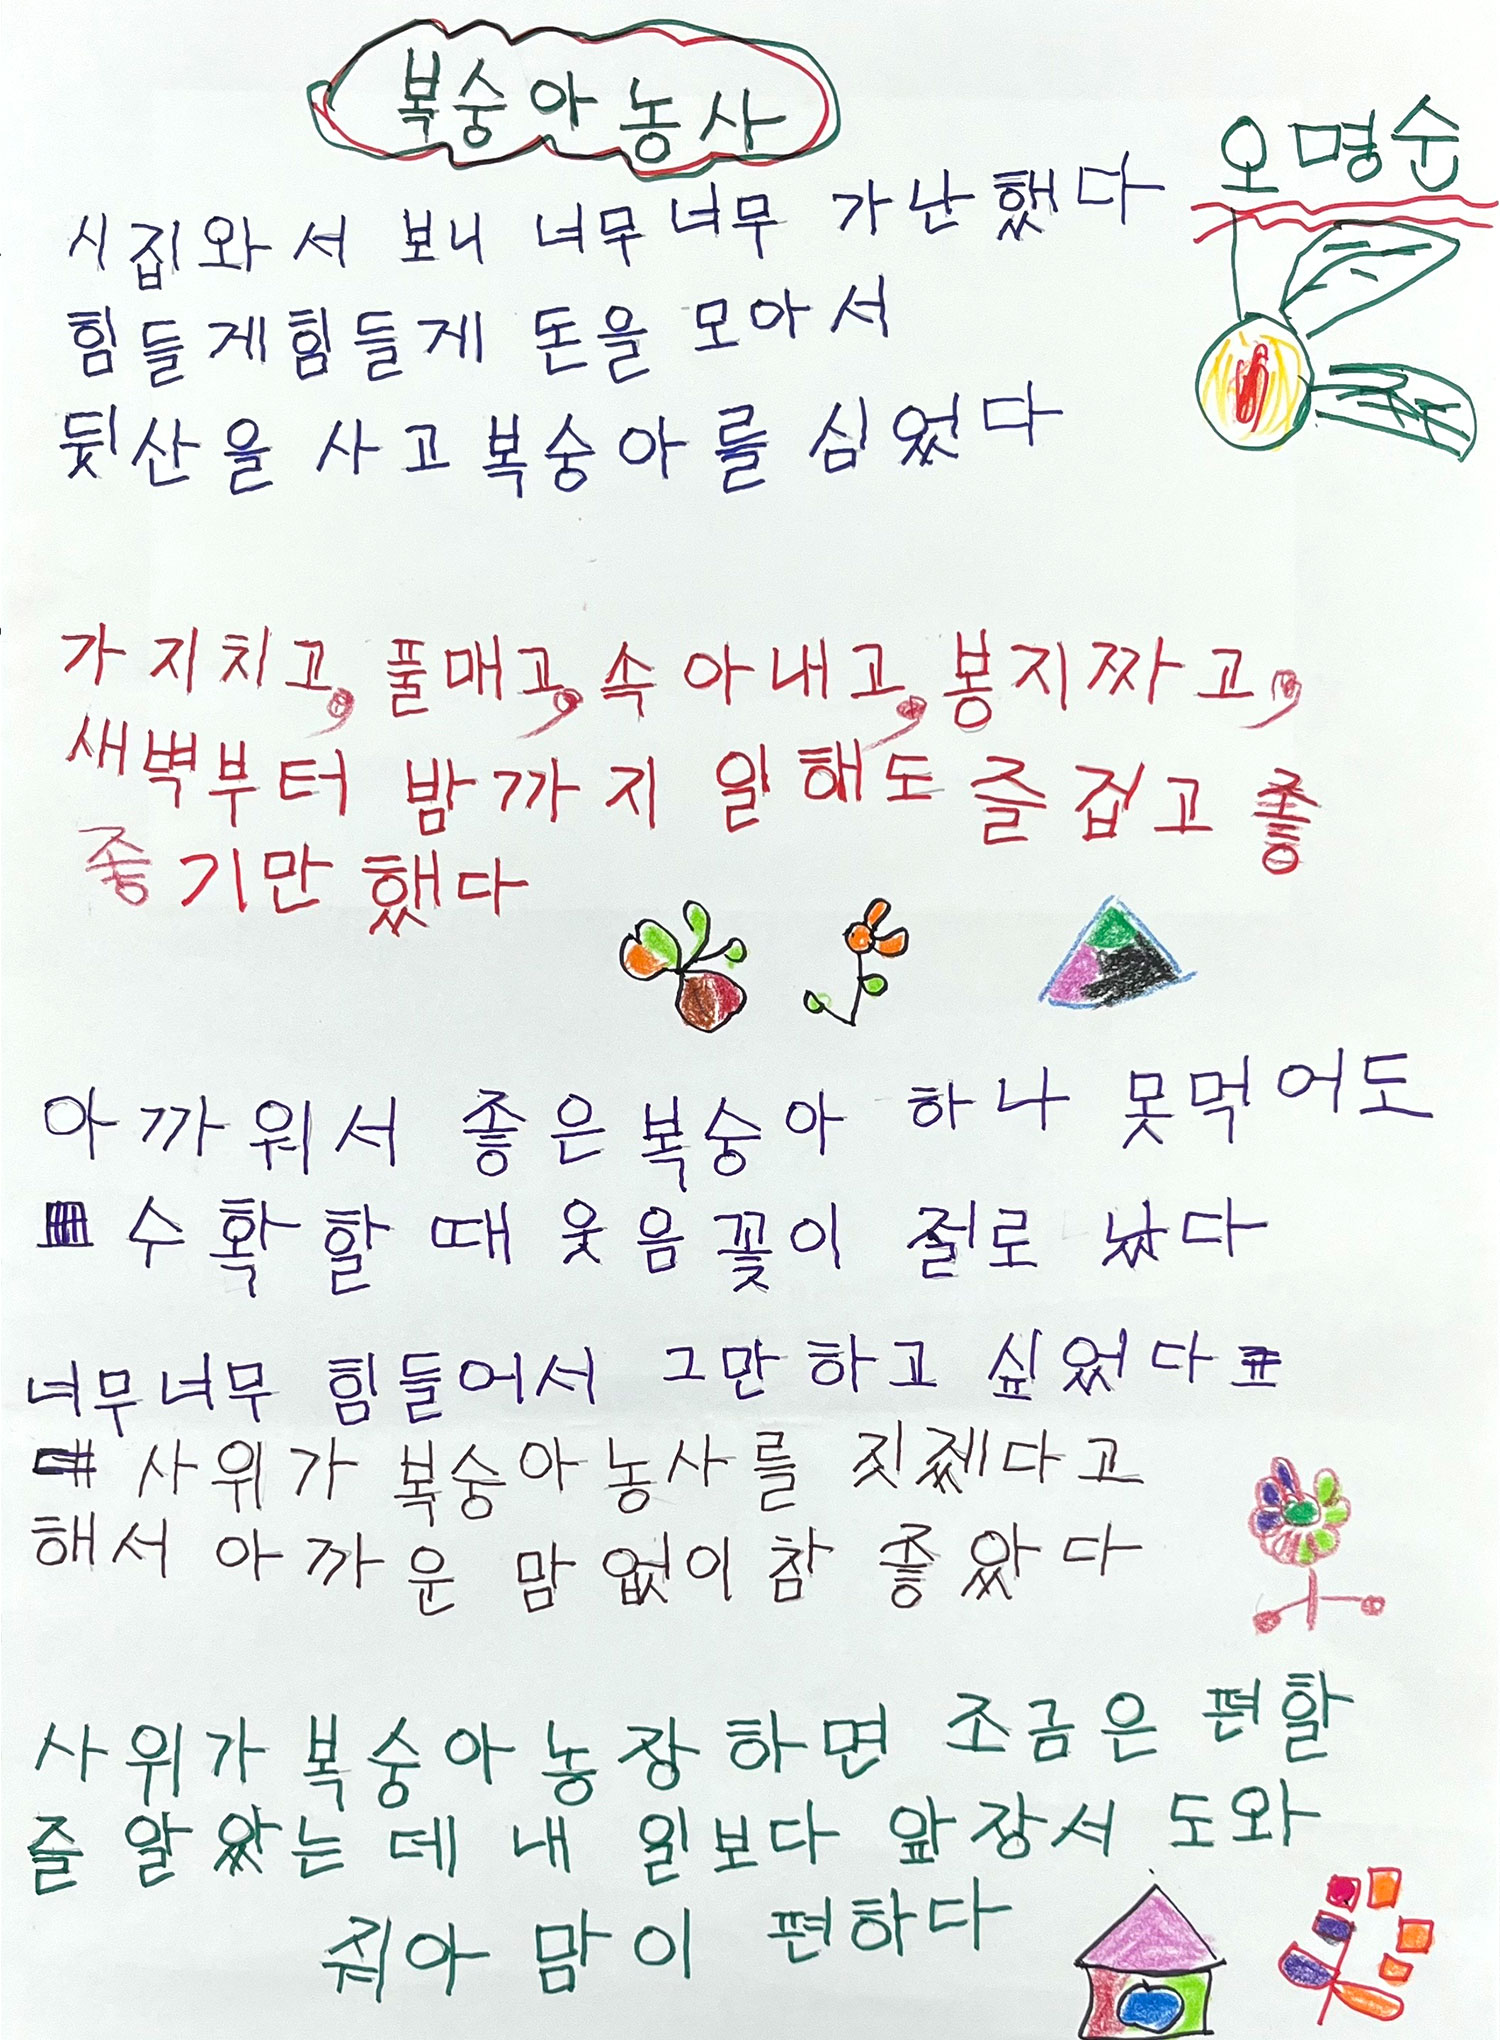 복숭아 농사
오명순
시집와서 보니 너무너무 가난했다
힘들게힘들게 돈을 모아서
뒷산을 사고 복숭아를 심었다
가지치고, 풀매고, 속아내고, 봉지짜고,
새벽부터 밤까지 일해도 즐겁고 좋
좋기만 했다
아까워서 좋은 복숭아 하나 못먹어도
수확할 때 웃음꽃이 절로 났다
너무너무 힘들어서 그만하고 싶었다
사위가 복숭아농사를 짓젰다고
해서 아까운 맘 없이 참 좋았다
사위가 복숭아 농장하면 조금은 편할
줄 알았는데 내 일보다 앞장서 도와
줘아 맘이 편하다